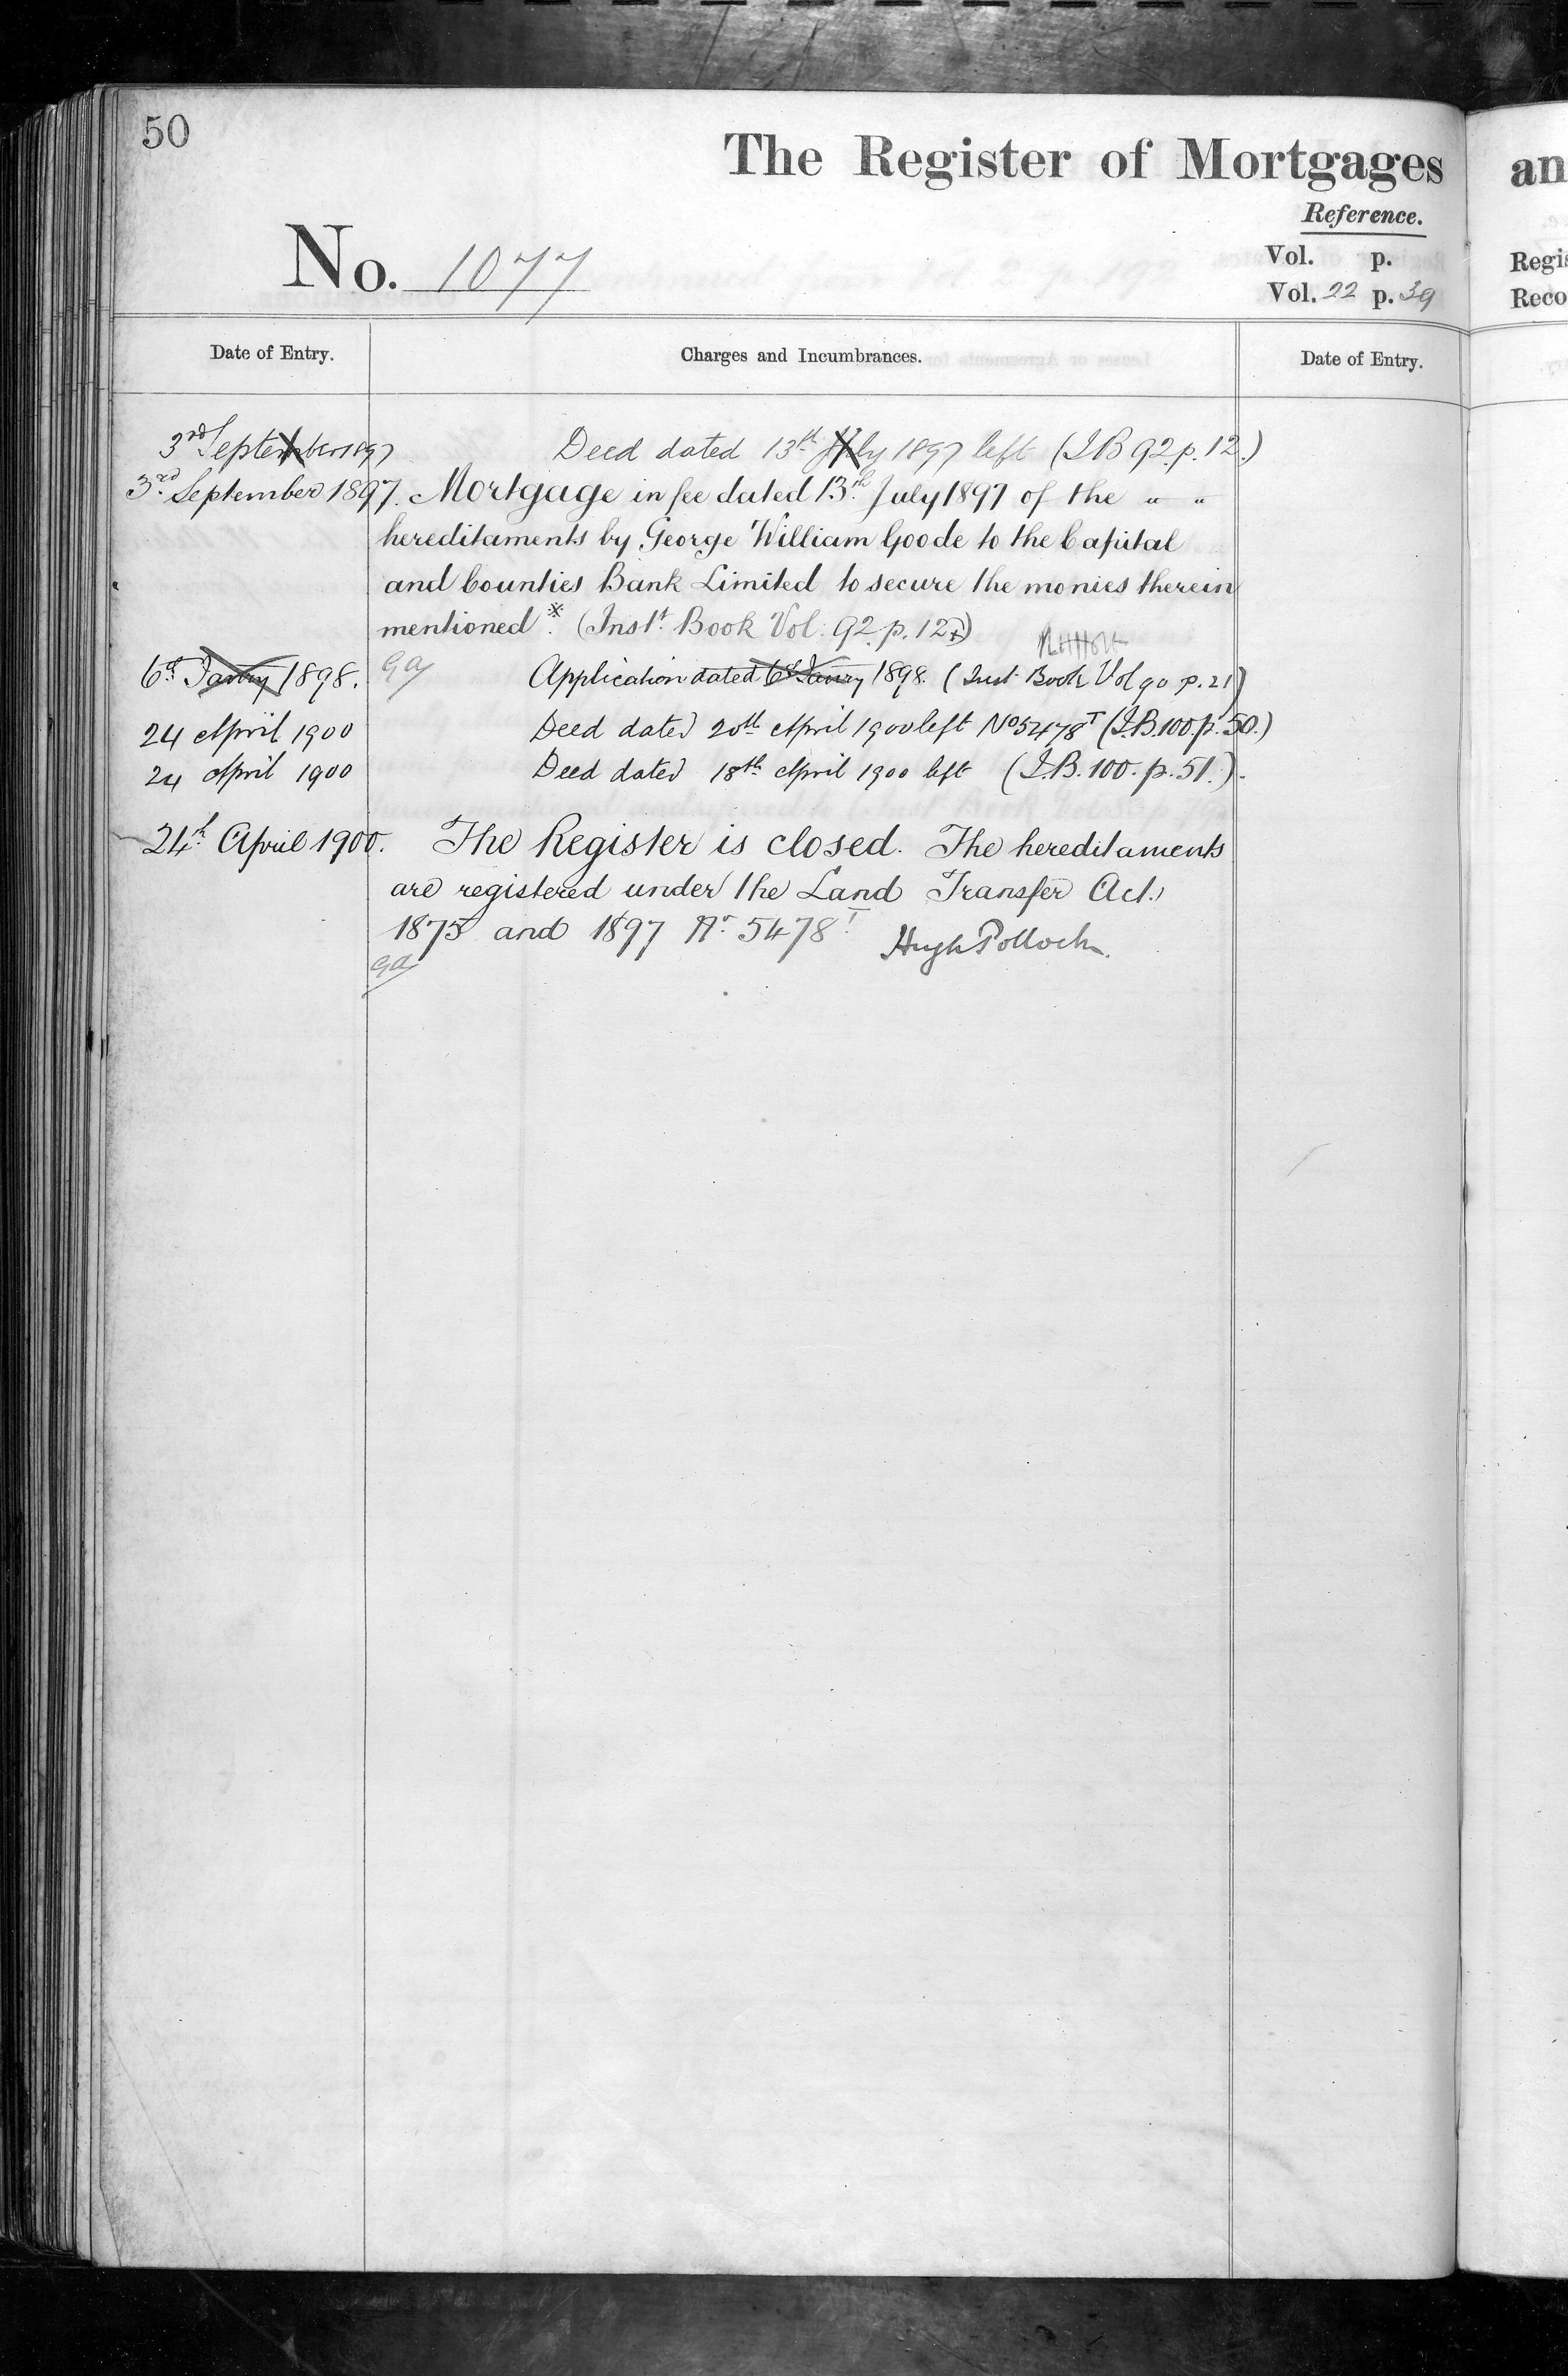 50
The Register of Mortgages
an
Reference.
No. 1077
Vol. p.
Regis
Vol. 22 p. 39
Reco
Date of Entry.
Charges and Incumbrances.
Date of Entry.
3rd September 1897 Deed dated 13th July 1897 left (I B 92. p. 12.)
3rd September 1897. Mortgage in fee dated 13th July 1897 of the " "
hereditaments by George William Goode to the Capital
and Counties Bank Limited to secure the monies therein
mentioned * (Inst. Book Vol. 92 p. 12)
6th Janry 1898. Application dated 6th Janry 1898. (Inst Book Vol 90 p. 21)
24 April 1900 Deed dated 20th April 1900 left No 5478T (I.B. 100. p. 50.)
24 April 1900 Deed dated 18th April 1900 left (I.B. 100. p. 51.)
24th April 1900. The Register is closed. The hereditaments
are registered under the Land Transfer Acts
1875 and 1897 No 5478T Hugh Pollock.